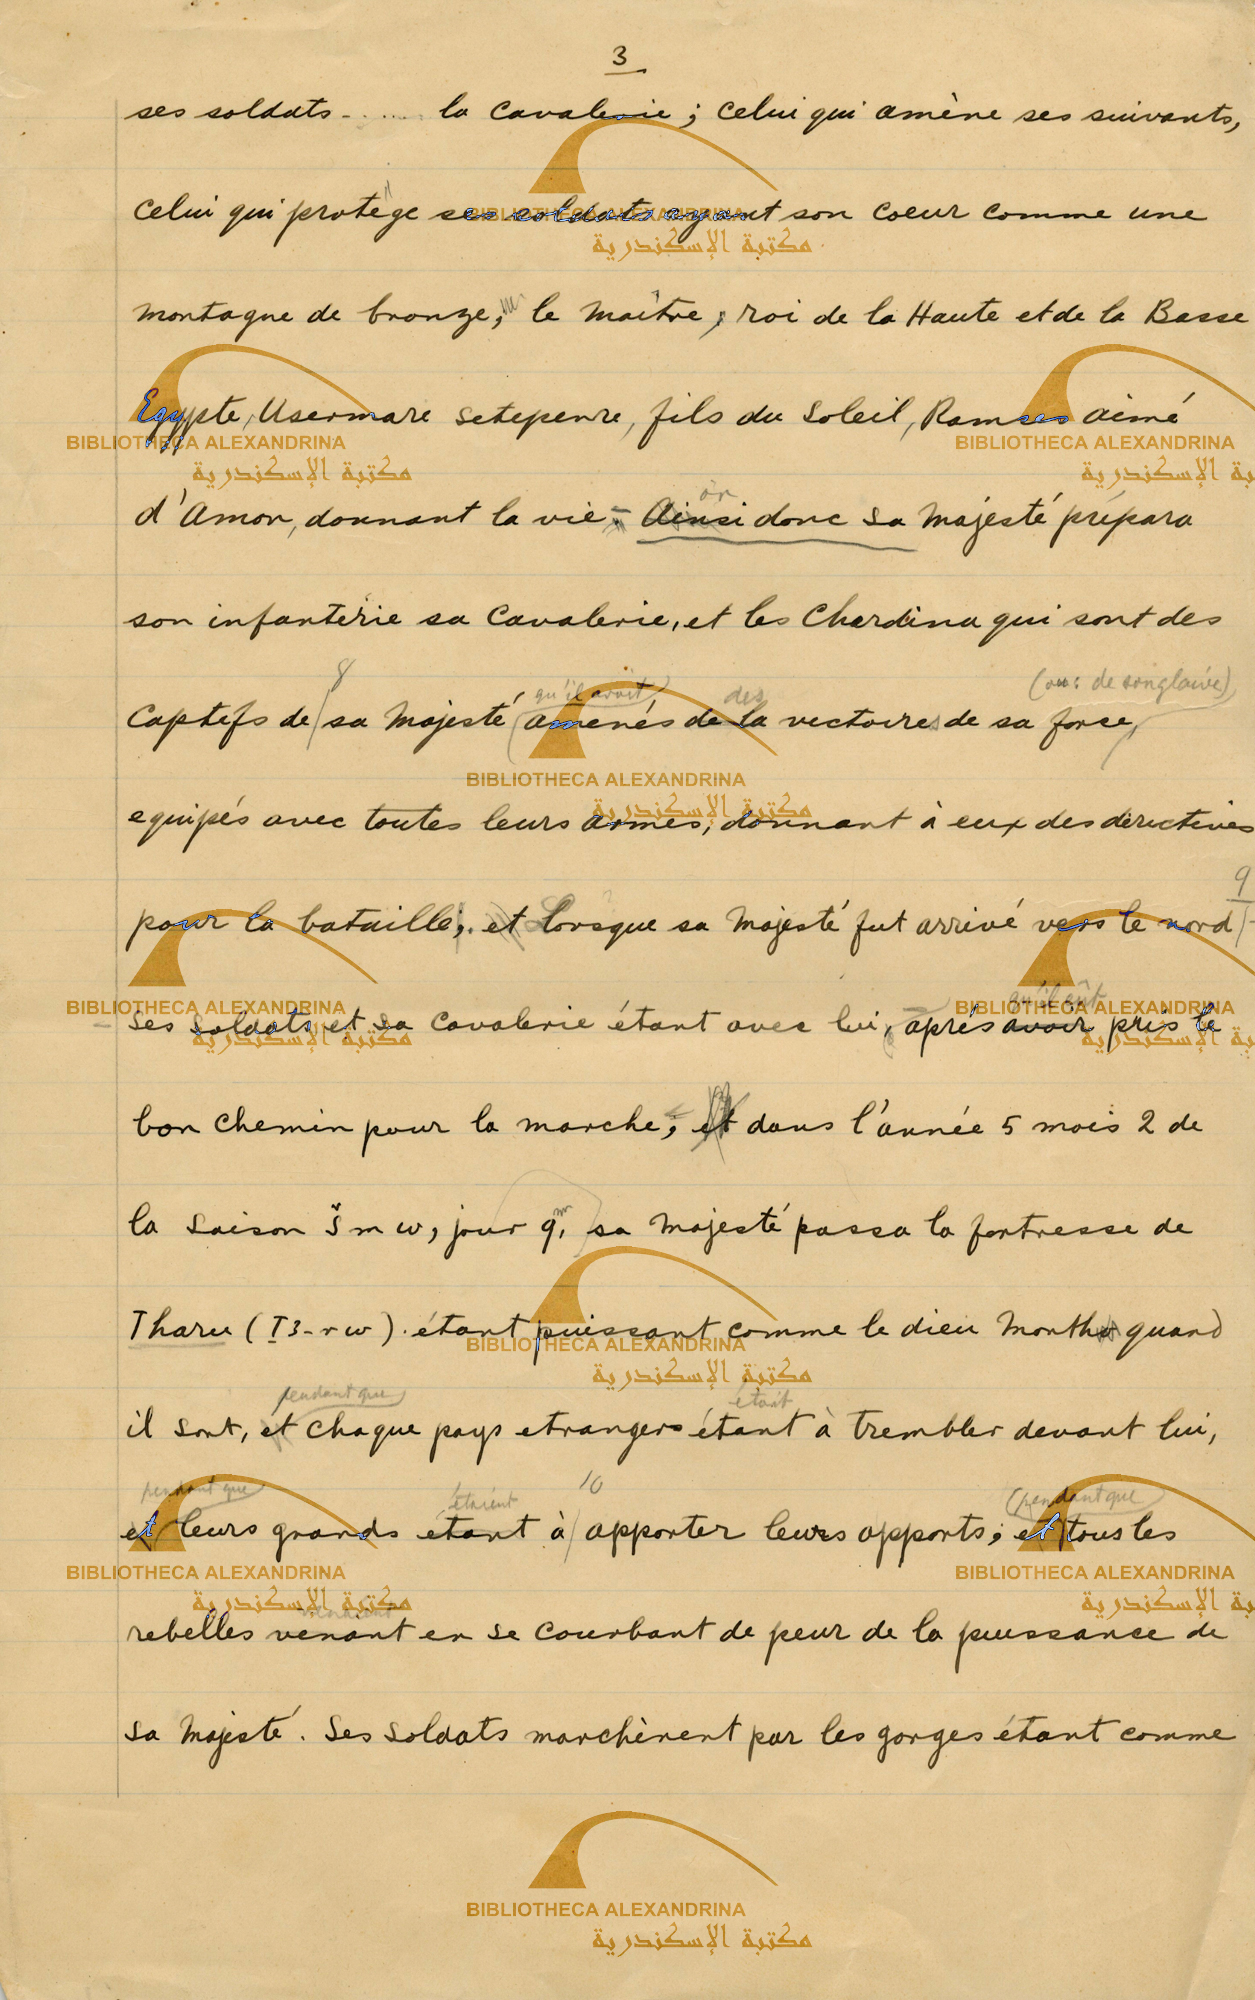 3
ses soldats ...... la cavalerie ; celui qui amène ses suivants,
celui qui protège ses soldats ayant son coeur comme une
montagne de bronze, le maître, roi de la Haute et de la Basse
Egypte, Usermare setepenre, fils du Soleil, Ramses aimé
or
d'Amon, donnant la vie. Ainsi donc sa Majesté prépara
son infanterie sa cavalerie, et les Chardina qui sont des
8 qu'il avait des (ou: de son glaive)
captifs de sa Majesté amenés de la victoires de sa force,
equipés avec toutes leurs armes, donnant à eux des directives
9
pour la bataille; et lorsque sa Majesté fut arrivé vers le nord
qu'il eût
- ses soldats et sa cavalerie étant avec lui, - après avoir pris le
bon chemin pour la marche; et dans l'année 5 mois 2 de
la saison šmw, jour 9, sa Majesté passa la fortresse de
Tharu (T3-rw). étant puissant comme le dieu Month quand
pendant que était
il sort, et chaque pays etrangers étant à trembler devant lui,
pendant que étaient 10 (pendant que
et leurs grands étant à apporter leurs apports; et tous les
rebelles venant en se courbant de peur de la puissance de
sa Majesté. Ses soldats marchèrent par les gorges étant comme
BIBLIOTHECA ALEXANDRINA
مكتبة الإسكندرية